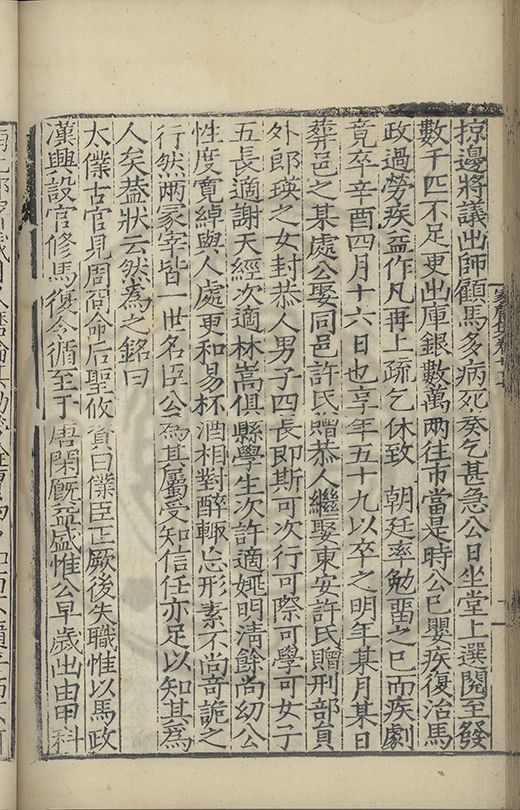 掠邊將議出師顧馬多病死奏乞甚急公日坐堂上選閱至發
數千匹不足更出庫銀數萬兩往市當是時公已嬰疾復治馬
政過勞疾益作凡再上疏乞休致 朝廷率勉畱之已而疾劇
竟卒辛酉四月十六日也享年五十九以卒之明年某月某日
葬邑之某處公娶同邑許氏贈恭人繼娶東安許氏贈刑部員
外郎瑛之女封恭人男子四長即斯可次行可際可學可女子
五長適謝天經次適林嵩俱縣學生次許適姚明淸餘尚幼公
性度寬綽與人處更和易杯酒相對醉輙忘形素不尚奇詭之
行然兩冢宰皆一世名臣公為其屬受知信任亦足以知其為
人矣葢狀云然為之銘曰
太僕古官見周冏命后聖攸資曰僕臣正厥後失職惟以馬政
漢興設官修馬復令循至于唐閑廐益盛惟公早歲出由甲科